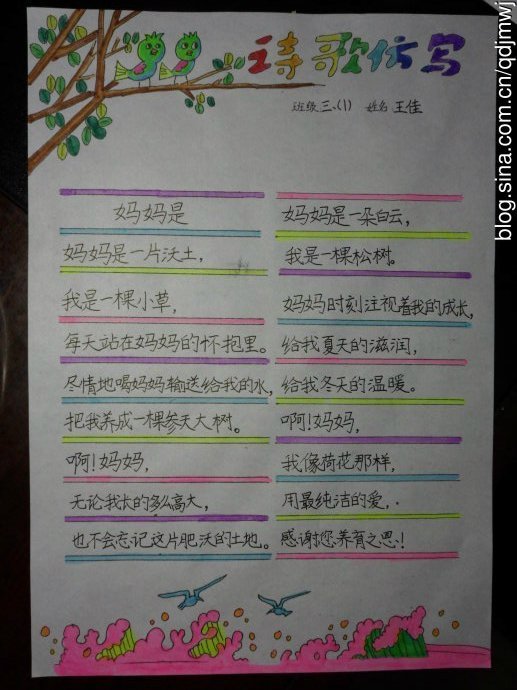 诗歌仿写
班级三、(1) 姓名 王佳
妈妈是
妈妈是一片沃土，
我是一棵小草，
每天站在妈妈的怀抱里。
尽情地喝妈妈输送给我的水，
把我养成一棵参天大树。
啊!妈妈，
无论我长的多么高大，
也不会忘记这片肥沃的土地。
妈妈是一朵白云，
我是一棵松树。
妈妈时刻注视着我的成长，
给我夏天的滋润，
给我冬天的温暖。
啊!妈妈，
我像荷花那样，
用最纯洁的爱，.
感谢您养育之恩!
blog.sina.com.cn/qdjmwj